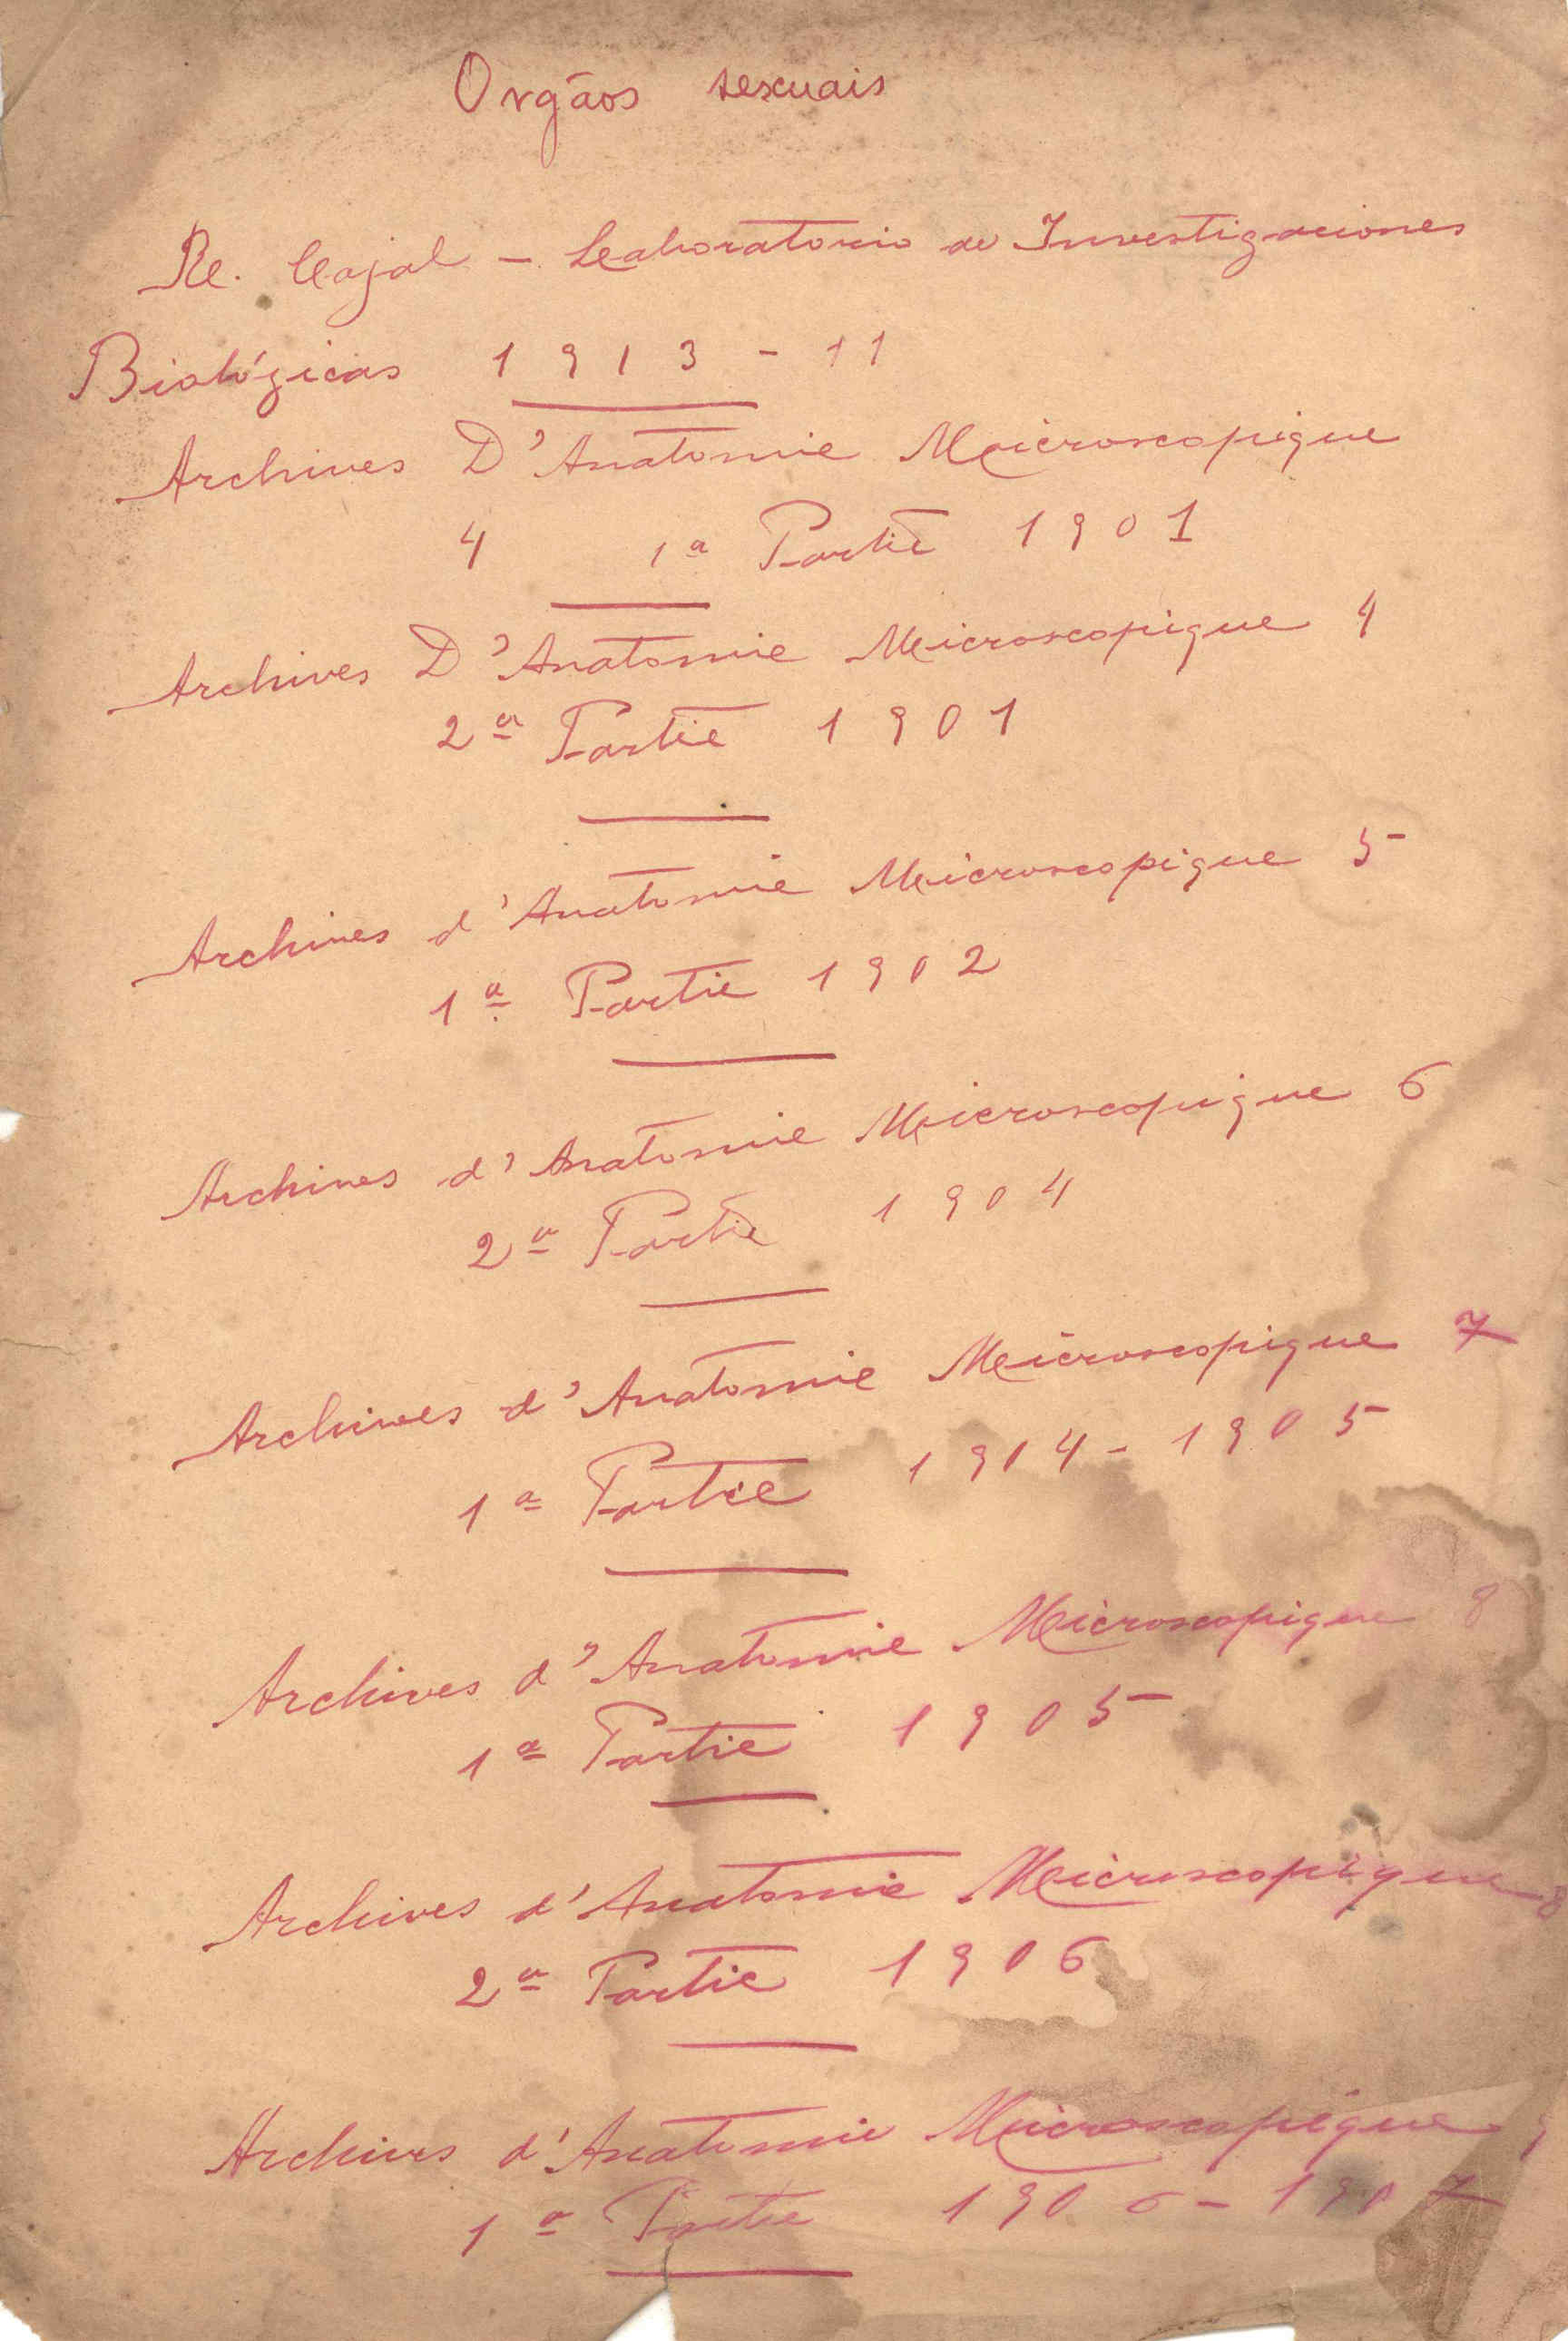 Orgãos sexuais
Re. Cajal - Laboratorio de Investigaciones
Biológicas 1913-11
Archives D'Anatomie Microscopique
4 1ª Partie 1901
Archives D'Anatomie Microscopique 4
2ª Partie 1901
Archives d'Anatomie Microscopique 5
1ª Partie 1902
Archives d'Anatomie Microscopique 6
2ª Partie 1904
Archives d'Anatomie Microscopique 7
1ª Partie 1904-1905
Archives d'Anatomie Microscopique 8
1ª Partie 1905
Archives d'Anatomie Microscopique 8
2ª Partie 1906
Archives d'Anatomie Microscopique 9
1ª Partie 1906-1907